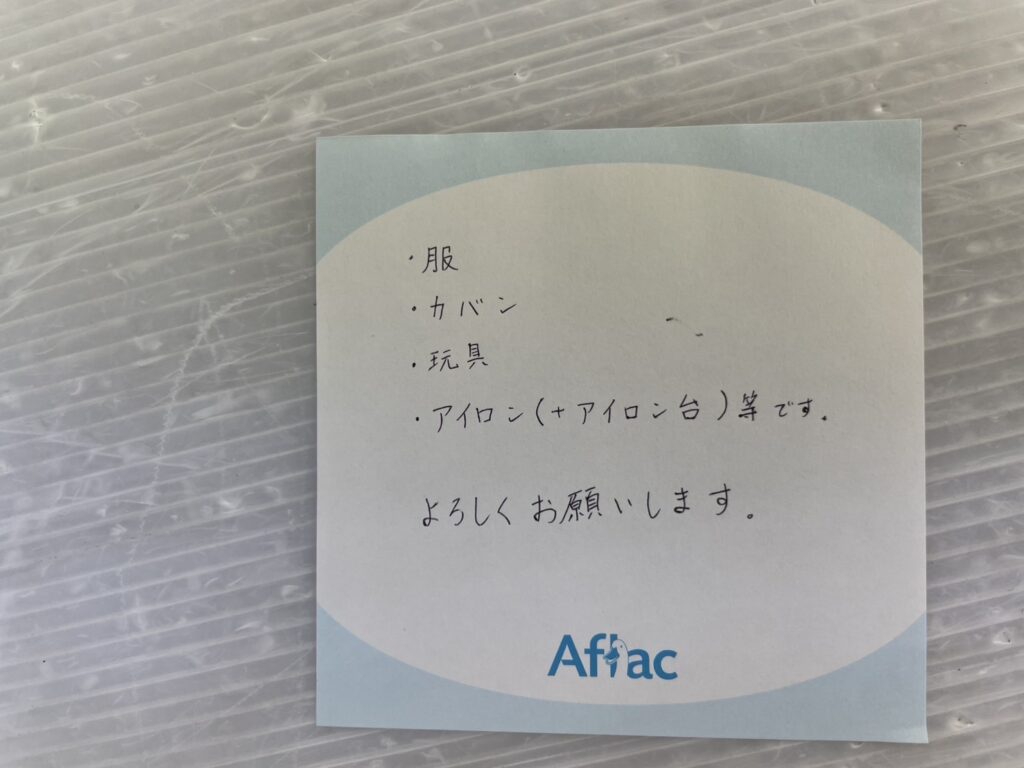 ・服
・カバン
・玩具
・アイロン(+アイロン台)等です。
よろしくお願いします。
Aflac